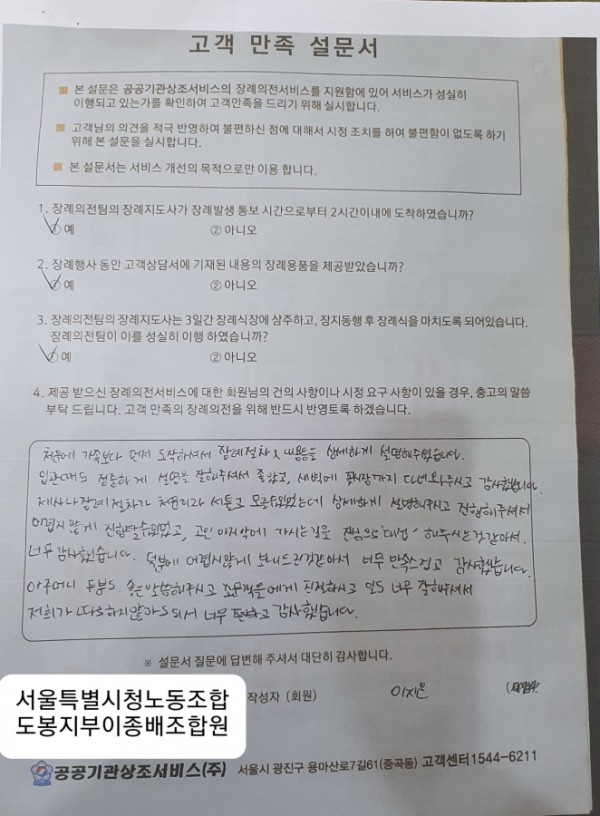 고객 만족 설문서
■ 본 설문은 공공기관상조서비스의 장례의전서비스를 지원함에 있어 서비스가 성실히
이행되고 있는가를 확인하여 고객만족을 드리기 위해 실시합니다.
■ 고객님의 의견을 적극 반영하여 불편하신 점에 대해서 시정 조치를 하여 불편함이 없도록 하기
위해 본 설문을 실시합니다.
■ 본 설문서는 서비스 개선의 목적으로만 이용 합니다.
1. 장례의전팀의 장례지도사가 장례발생 통보 시간으로부터 2시간이내에 도착하였습니까?
① 예 ② 아니오
2. 장례행사 동안 고객상담서에 기재된 내용의 장례용품을 제공받았습니까?
① 예 ② 아니오
3. 장례의전팀의 장례지도사는 3일간 장례식장에 상주하고, 장지동행 후 장례식을 마치도록 되어있습니다.
장례의전팀이 이를 성실히 이행 하였습니까?
① 예 ② 아니오
4. 제공 받으신 장례의전서비스에 대한 회원님의 건의 사항이나 시정 요구 사항이 있을 경우, 충고의 말씀
부탁 드립니다. 고객 만족의 장례의전을 위해 반드시 반영토록 하겠습니다.
처음에 가족보다 먼저 도착하셔서 장례절차 & 내용등을 상세하게 설명해주셨습니다.
입관때도 정중하게 설명을 잘해주셔서 좋았고, 새벽에 까지 다녀와주시고 감사했습니다.
제사나 장례절차가 처음이라 서툴고 모를수있었는데 상세하게 설명해주시고 진행해주셔서
어렵지않게 진행할수있었고, 고인 마지막에 가시는길을 해주시는것같아서.
너무 감사했습니다. 덕분에 어렵지않게 보내드린것같아서 너무 만족스럽고 감사했습니다.
아주머니 두분도 좋은말씀해주시고 조문객들에게 친절하시고 일도 너무 잘해주셔서
저희가 따로하지않아도되서 너무 편하고 감사했습니다.
※ 설문서 질문에 답변해 주셔서 대단히 감사합니다.
작성자 (회원)
서울특별시청노동조합
도봉지부이종배조합원
공공기관상조서비스(주) 서울시 광진구 용마산로7길61(중곡동) 고객센터1544-6211